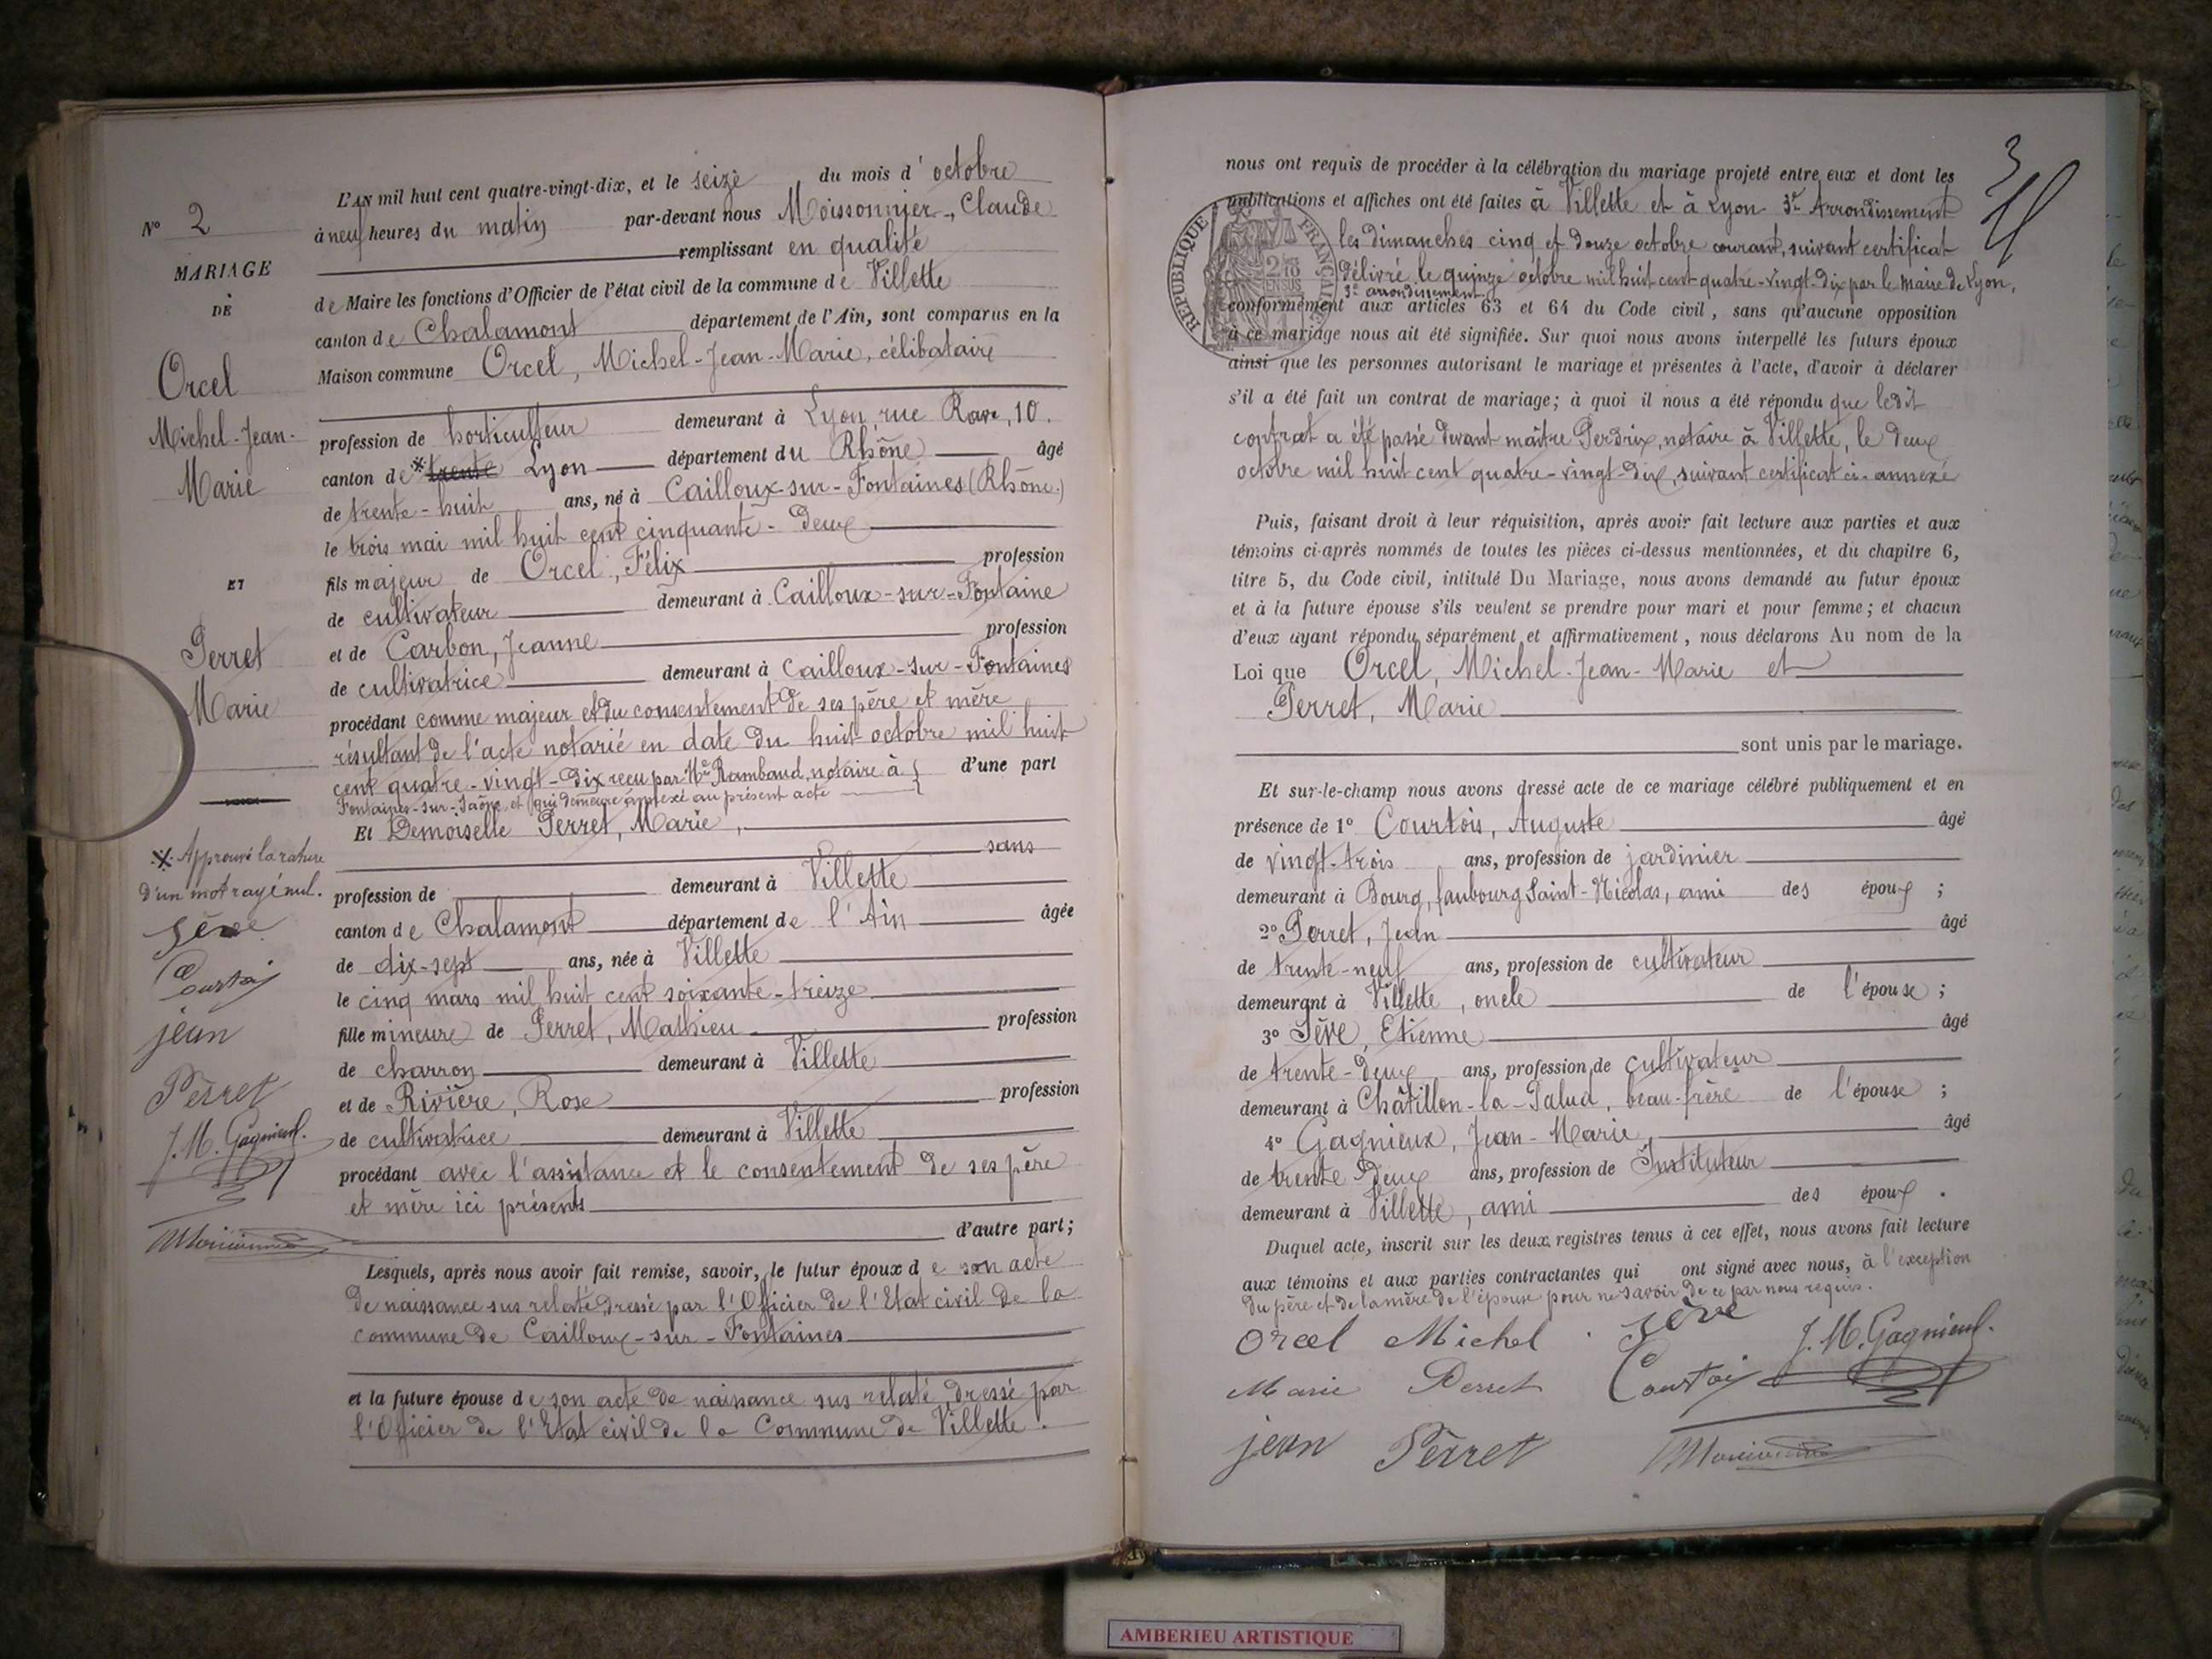 N° 2
MARIAGE
DE
Orcel
Michel-Jean-
Marie
ET
Perret
Marie
※ Approuvé la rature
d'un mot rayé nul.
Sève
Courtois
jean
Perret
J. M. Gagnieux.
L'AN mil huit cent quatre-vingt-dix, et le seize du mois d'octobre
à neuf heures du matin par-devant nous Moissonnier, Claude
remplissant en qualité
de Maire les fonctions d'Officier de l'état civil de la commune de Villette
canton de Chalamont département de l'Ain, sont comparus en la
Maison commune Orcel, Michel-Jean-Marie, célibataire
profession de horticulteur demeurant à Lyon, rue Rave, 10.
canton de ※ trente Lyon département du Rhône âgé
de trente-huit ans, né à Cailloux-sur-Fontaines (Rhône.)
le trois mai mil huit cent cinquante-deux
fils majeur de Orcel, Félix profession
de cultivateur demeurant à Cailloux-sur-Fontaine
et de Carbon, Jeanne profession
de cultivatrice demeurant à Cailloux-sur-Fontaines
procédant comme majeur et du consentement de ses père et mère
résultant de l'acte notarié en date du huit octobre mil huit
cent quatre-vingt-dix reçu par Me Rambaud, notaire à d'une part
Fontaines-sur-Saône, et qui demeure annexé au présent acte
Et Demoiselle Perret, Marie,
sans
profession de demeurant à Villette
canton de Chalamont département de l'Ain âgée
de dix-sept ans, née à Villette
le cinq mars mil huit cent soixante-treize
fille mineure de Perret, Mathieu profession
de charron demeurant à Villette
et de Rivière, Rose profession
de cultivatrice demeurant à Villette
procédant avec l'assistance et le consentement de ses père
et mère ici présents
d'autre part;
Lesquels, après nous avoir fait remise, savoir, le futur époux de son acte
de naissance sus relaté, dressé par l'Officier de l'Etat civil de la
commune de Cailloux-sur-Fontaines
et la future épouse de son acte de naissance sus relaté, dressé par
l'Officier de l'Etat civil de la Commune de Villette.
3
nous ont requis de procéder à la célébration du mariage projeté entre eux et dont les
publications et affiches ont été faites à Villette et à Lyon 3e Arrondissement
les dimanches cinq et douze octobre courant, suivant certificat
délivré le quinze octobre mil huit cent quatre-vingt-dix par le maire de Lyon,
3e arrondissement.
RÉPUBLIQUE FRANÇAISE
conformément aux articles 63 et 64 du Code civil, sans qu'aucune opposition
à ce mariage nous ait été signifiée. Sur quoi nous avons interpellé les futurs époux
ainsi que les personnes autorisant le mariage et présentes à l'acte, d'avoir à déclarer
s'il a été fait un contrat de mariage; à quoi il nous a été répondu que ledit
contrat a été passé devant maître Perdrix, notaire à Villette, le deux
octobre mil huit cent quatre-vingt-dix, suivant certificat ci-annexé
Puis, faisant droit à leur réquisition, après avoir fait lecture aux parties et aux
témoins ci-après nommés de toutes les pièces ci-dessus mentionnées, et du chapitre 6,
titre 5, du Code civil, intitulé Du Mariage, nous avons demandé au futur époux
et à la future épouse s'ils veulent se prendre pour mari et pour femme; et chacun
d'eux ayant répondu séparément et affirmativement, nous déclarons Au nom de la
Loi que Orcel, Michel-Jean-Marie et
Perret, Marie
sont unis par le mariage.
Et sur-le-champ nous avons dressé acte de ce mariage célébré publiquement et en
présence de 1° Courtois, Auguste âgé
de vingt-trois ans, profession de jardinier
demeurant à Bourg, faubourg Saint-Nicolas, ami des époux;
2° Perret, Jean âgé
de trente-neuf ans, profession de cultivateur
demeurant à Villette, oncle de l'épouse;
3° Sève, Etienne âgé
de trente-deux ans, profession de cultivateur
demeurant à Châtillon-la-Palud, beau-frère de l'épouse;
4° Gagnieux, Jean-Marie, âgé
de trente deux ans, profession de Instituteur
demeurant à Villette, ami des époux.
Duquel acte, inscrit sur les deux registres tenus à cet effet, nous avons fait lecture
aux témoins et aux parties contractantes qui ont signé avec nous, à l'exception
du père et de la mère de l'épouse pour ne savoir de ce par nous requis.
Orcel Michel. Sève J. M. Gagnieux.
Marie Perret Courtois
jean Perret
AMBERIEU ARTISTIQUE